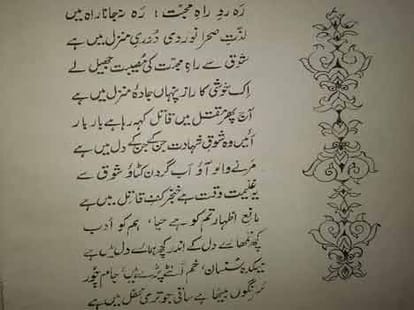 رَہ روِ راہِ محبّت! رَہ نہ جانا راہ میں
لذّتِ صحرا نوردی دُوریٔ منزل میں ہے
شوق سے راہِ محبّت کی مصیبت جھیل لے
اِک خوشی کا راز پنہاں جادۂ منزل میں ہے
آج پھر مقتل میں قاتل کہہ رہا ہے بار بار
آئیں وہ شوقِ شہادت جن کے جن کے دل میں ہے
مرنے والو آؤ اب گردن کٹاؤ شوق سے
یہ غنیمت وقت ہے خنجر کفِ قاتل میں ہے
مانعِ اظہار تم کو ہے حیا، ہم کو ادب
کچھ تمھارے دل کے اندر کچھ ہمارے دل میں ہے
میکدہ سُنسان، خُم اُلٹے پڑے ہیں، جام چُور
سرنگوں بیٹھا ہے ساقی جو تری محفل میں ہے